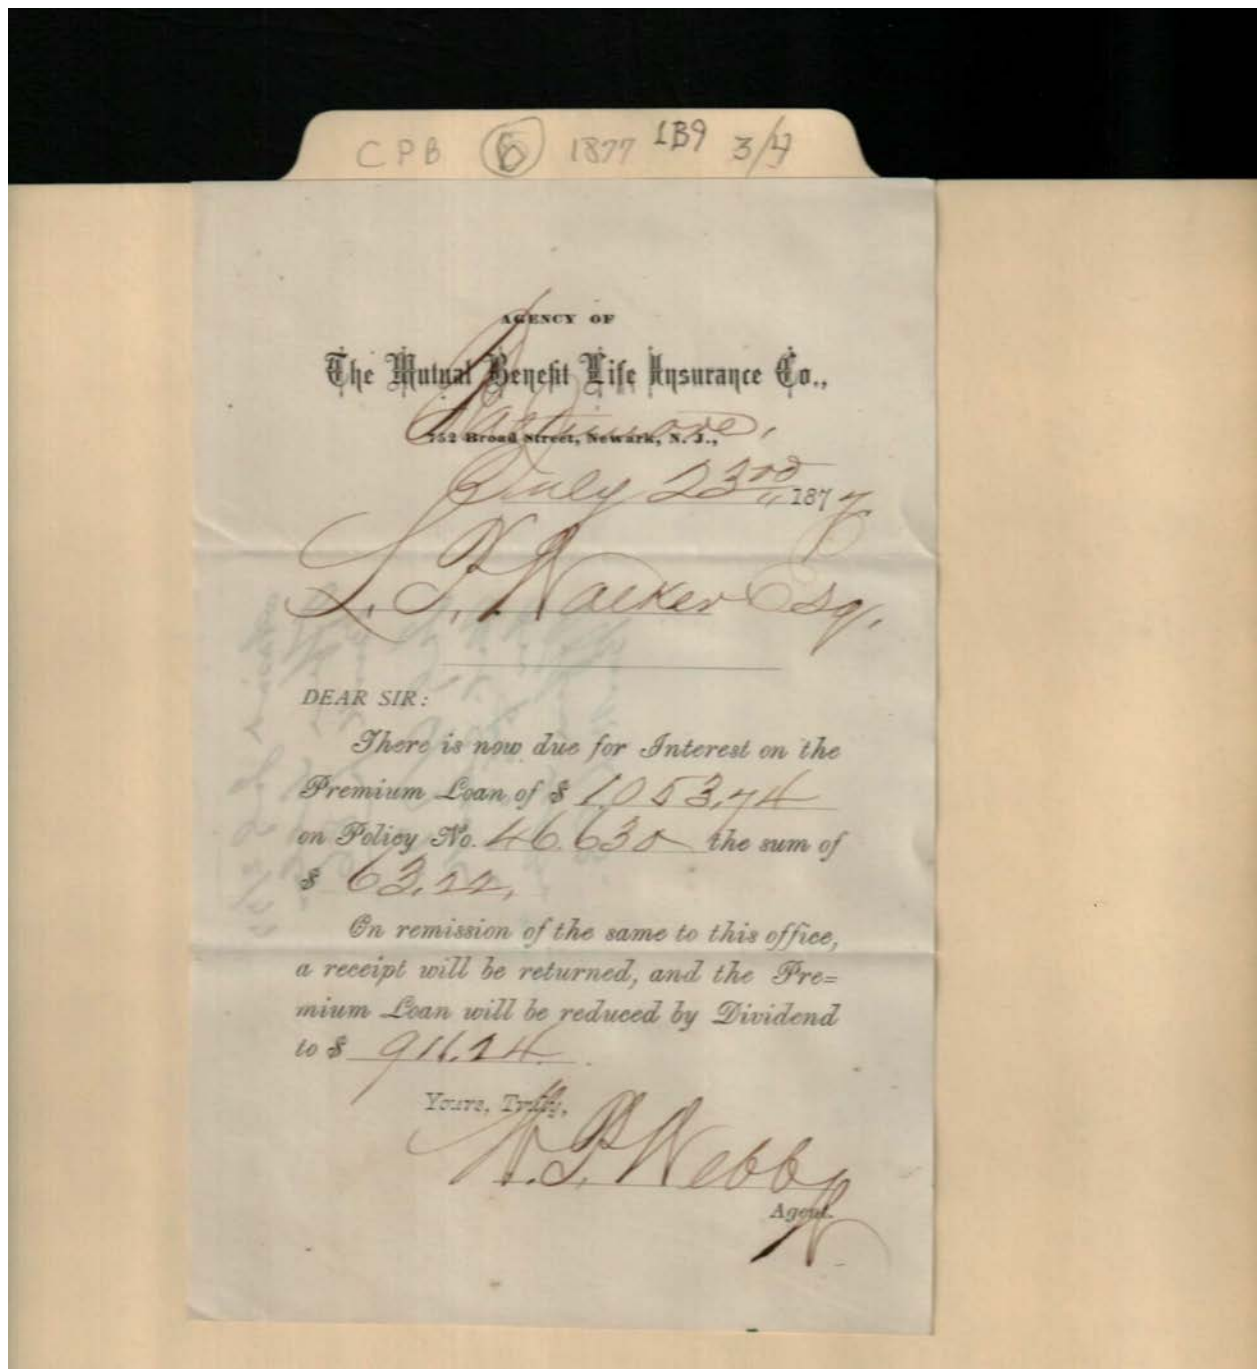 CPB 6 1877 1B9 3/4
AGENCY OF
The Mutual Benefit Life Insurance Co.,
Baltimore,
752 Broad Street, Newark, N. J.,
July 23rd 1877
L. P. Walker Esq.
DEAR SIR:
There is now due for Interest on the
Premium Loan of $ 1.053,74
on Policy No. 46.630 the sum of
$ 63,22,
On remission of the same to this office,
a receipt will be returned, and the Pre=
mium Loan will be reduced by Dividend
to $ 911.24
Yours, Truly,
W. P. Webb
Agent.